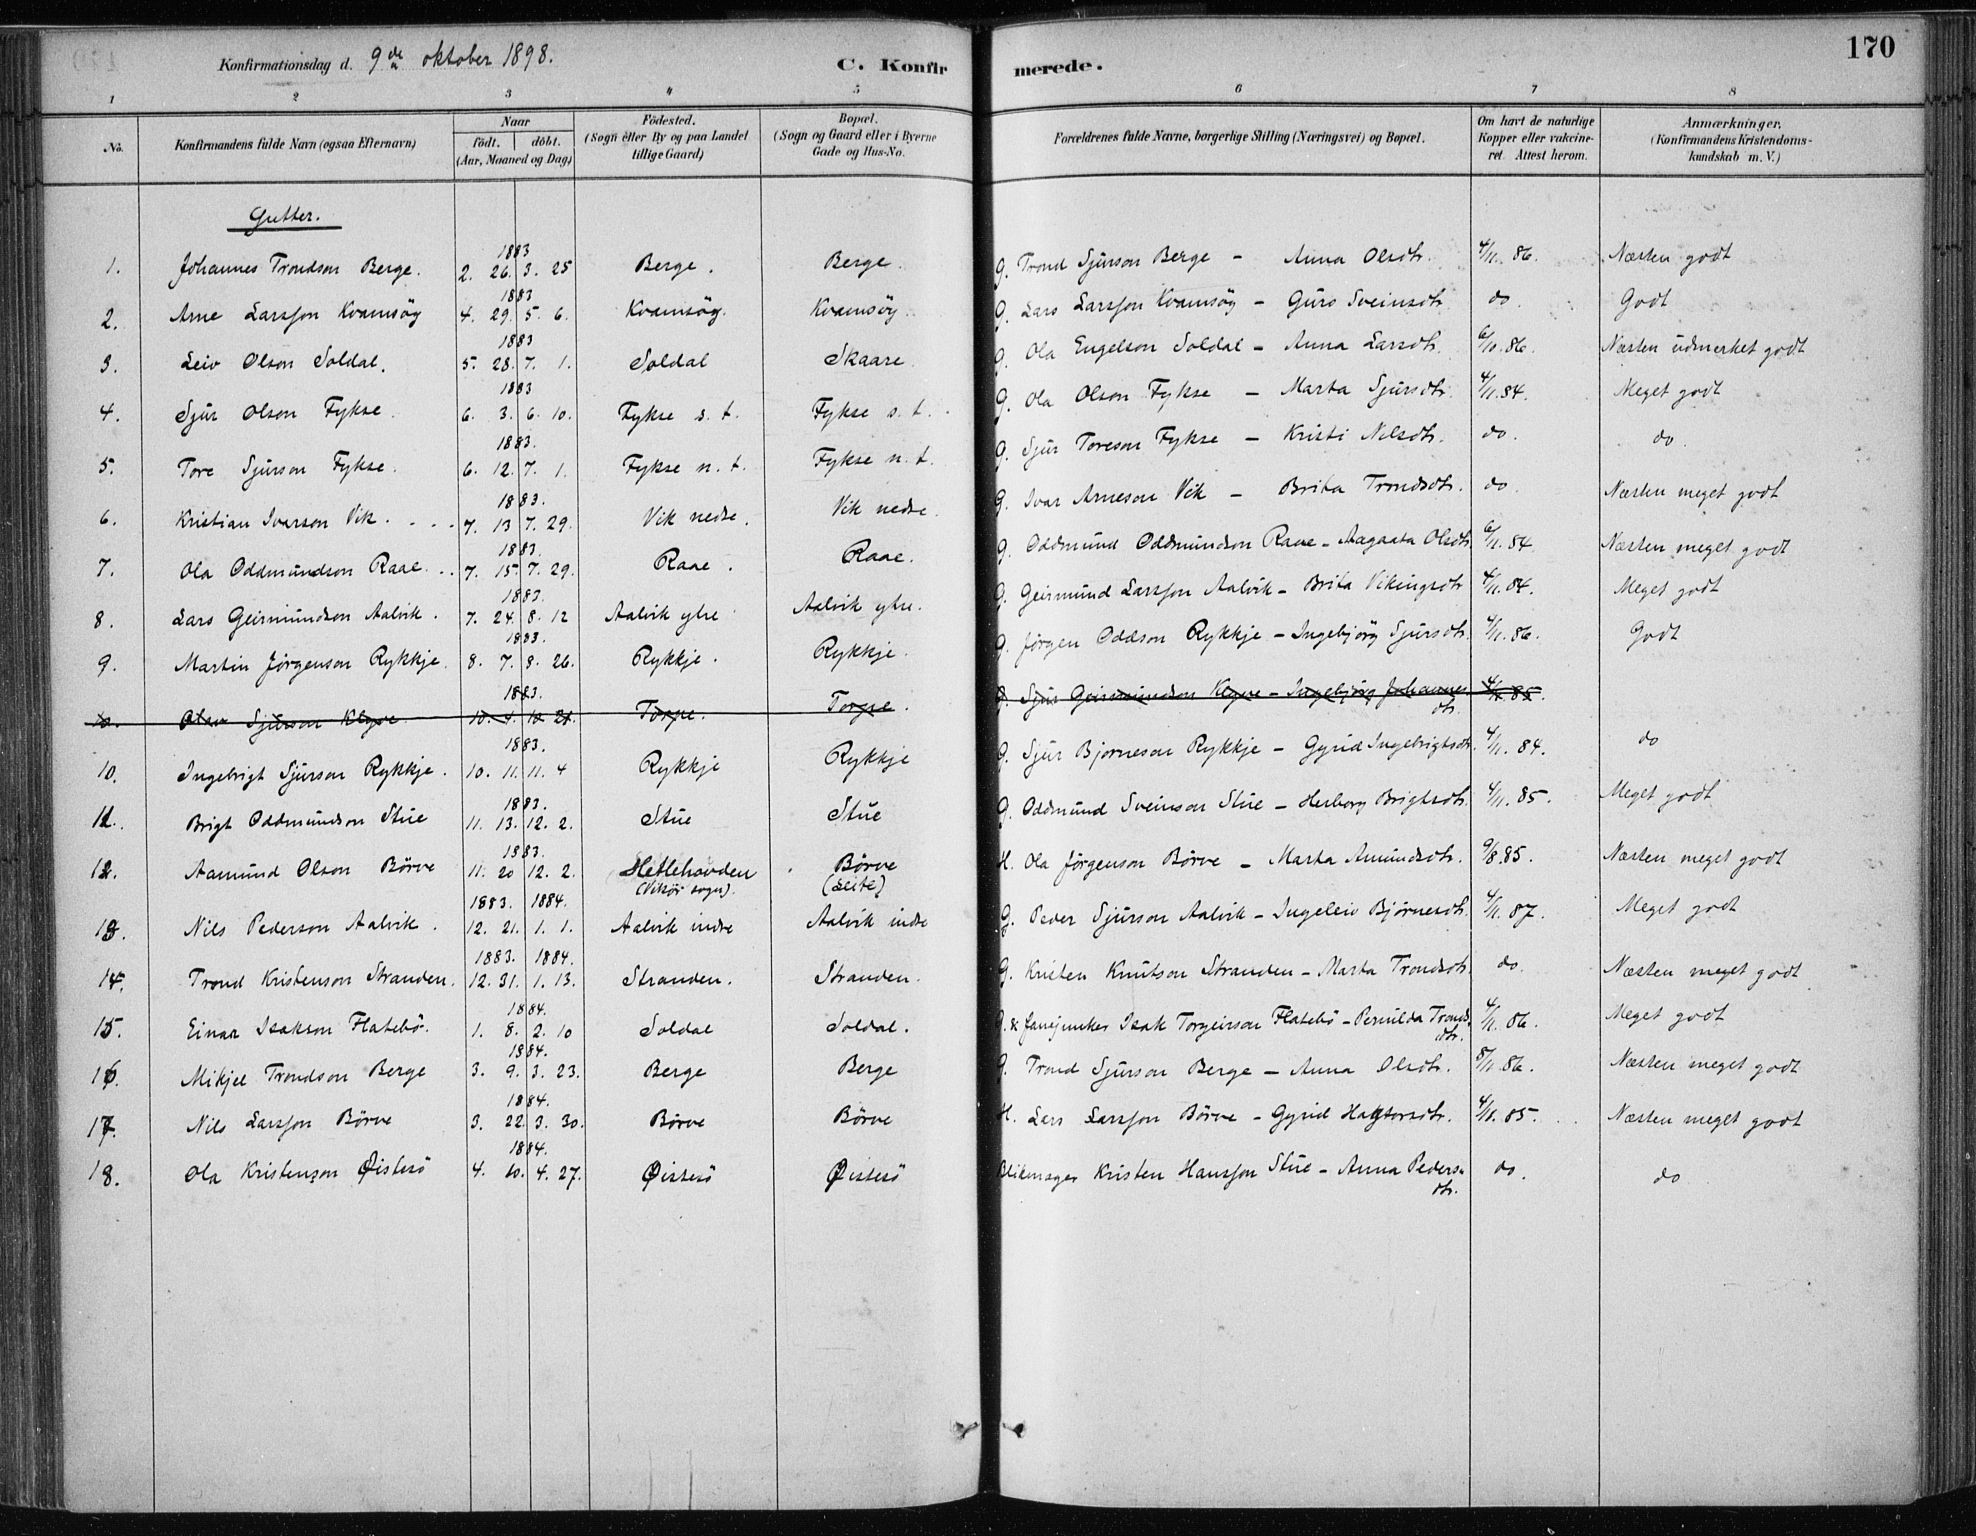 170
Konfirmationsdag d. 9de oktober 1898.
C. Konfirmerede.
1 2 3 4 5 6 7 8
No. Konfirmandens fulde Navn (ogsaa Efternavn) Naar født. døbt. (Aar, Maaned og Dag) Fødested. (Sogn eller By og paa Landet tillige Gaard) Bopæl. (Sogn og Gaard eller i Byerne Gade og Hus-No. Forældrenes fulde Navne, borgerlige Stilling (Næringsvei) og Bopæl. Om havt de naturlige Kopper eller vakcineret. Attest herom. Anmærkninger, (Konfirmandens Kristendomskundskab m. V.)
Gutter.
1. Johannes Trondson Berge. 1883 2. 26. 3. 25 Berge. Berge. G. Trond Sjurson Berge - Anna Olsdtr. 4/11. 86. Næsten godt
2. Arne Larsson Kvamsøy 1883 4. 29. 5. 6. Kvamsøy. Kvamsøy. G. Lars Larsson Kvamsøy - Guro Sveinsdtr. do. Godt
3. Leiv Olson Soldal. 1883 5. 28. 7. 1. Soldal Skaare. G. Ola Engelson Soldal - Anna Larsdtr. 6/10. 86. Næsten udmerket godt
4. Sjur Olson Fykse. 1883 6. 3. 6. 10. Fykse s. t. Fykse s. t. G. Ola Olson Fykse - Marta Sjursdtr. 4/11. 84. Meget godt
5. Tore Sjurson Fykse. 1883. 6. 12. 7. 1. Fykse n. t. Fykse n. t. G. Sjur Toreson Fykse - Kristi Nilsdtr. do. do.
6. Kristian Ivarson Vik. 1883. 7. 13 7. 29. Vik nedre. Vik nedre. G. Ivar Arneson Vik - Brita Trondsdtr. do. Næsten meget godt
7. Ola Oddmundson Raae. 1883. 7. 15. 7. 29. Raae. Raae. G. Oddmund Oddmundson Raae - Aagaata Olsdtr. 6/11. 84. Næsten meget godt
8. Lars Geirmundson Aalvik. 1883. 7. 24. 8. 12 Aalvik ytre Aalvik ytre. G. Geirmund Larsson Aalvik - Brita Vikingsdtr. 4/11. 84. Meget godt
9. Martin Jørgenson Rykkje. 1883. 8. 7. 8. 26. Rykkje. Rykkje. G. Jørgen Oddson Rykkje - Ingebjørg Sjursdtr. 4/11. 86. Godt
10. Olav Sjurson Klyve 1883. 10. 4. 10. 21. Torpe. Torpe. G. Sjur Geirmundson Klyve - Ingebjørg Johannesdtr. 4/11. 85.
10. Ingebrigt Sjurson Rykkje. 1883. 10. 11. 11. 4 Rykkje Rykkje G. Sjur Bjorneson Rykkje - Gyrid Ingebrigtsdtr. 4/11. 84. do
11. Brigt Oddmundson Stue 1883. 11. 13. 12. 2. Stue Stue G. Oddmund Sveinson Stue - Herborg Brigtsdtr. 4/11. 85. Meget godt
12. Aamund Olson Børve 1883. 11. 20 12. 2. Hetlehovden (Vikør sogn). Børve (Leite) H. Ola Jørgenson Børve - Marta Amundsdtr. 9/8. 85. Næsten meget godt
13. Nils Pederson Aalvik. 1883. 1884. 12. 21. 1. 1. Aalvik indre Aalvik indre G. Peder Sjurson Aalvik - Ingeleiv Bjørnesdtr. 4/11. 87. Meget godt
14. Trond Kristenson Stranden. 1883. 1884. 12. 31. 1. 13. Stranden. Stranden. G. Kristen Knutson Stranden - Marta Trondsdtr. do. Næsten meget godt
15. Einar Isakson Flatebø. 1884. 1. 8. 2. 10 Soldal Soldal. G. & Lansjunker Isak Torgeirson Flatebø - Pernilda Trondsdtr. 4/11. 86. Meget godt
16. Mikjel Trondson Berge 1884. 3. 9. 3. 23. Berge Berge G. Trond Sjurson Berge - Anna Olsdtr. 8/11. 86. Næsten meget godt
17. Nils Larsson Børve 1884. 3. 22. 3. 30. Børve Børve H. Lars Larsson Børve - Gyrid Haktorsdtr. 4/11. 85. Næsten meget godt
18. Ola Kristenson Øistesø 1884. 4. 10. 4. 27. Øistesø Øistesø Blikmager Kristen Hansson Stue - Anna Pedersdtr. do. do